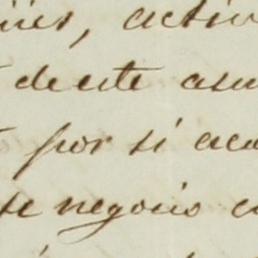 activ
de este asu
por si aca
se negocio c